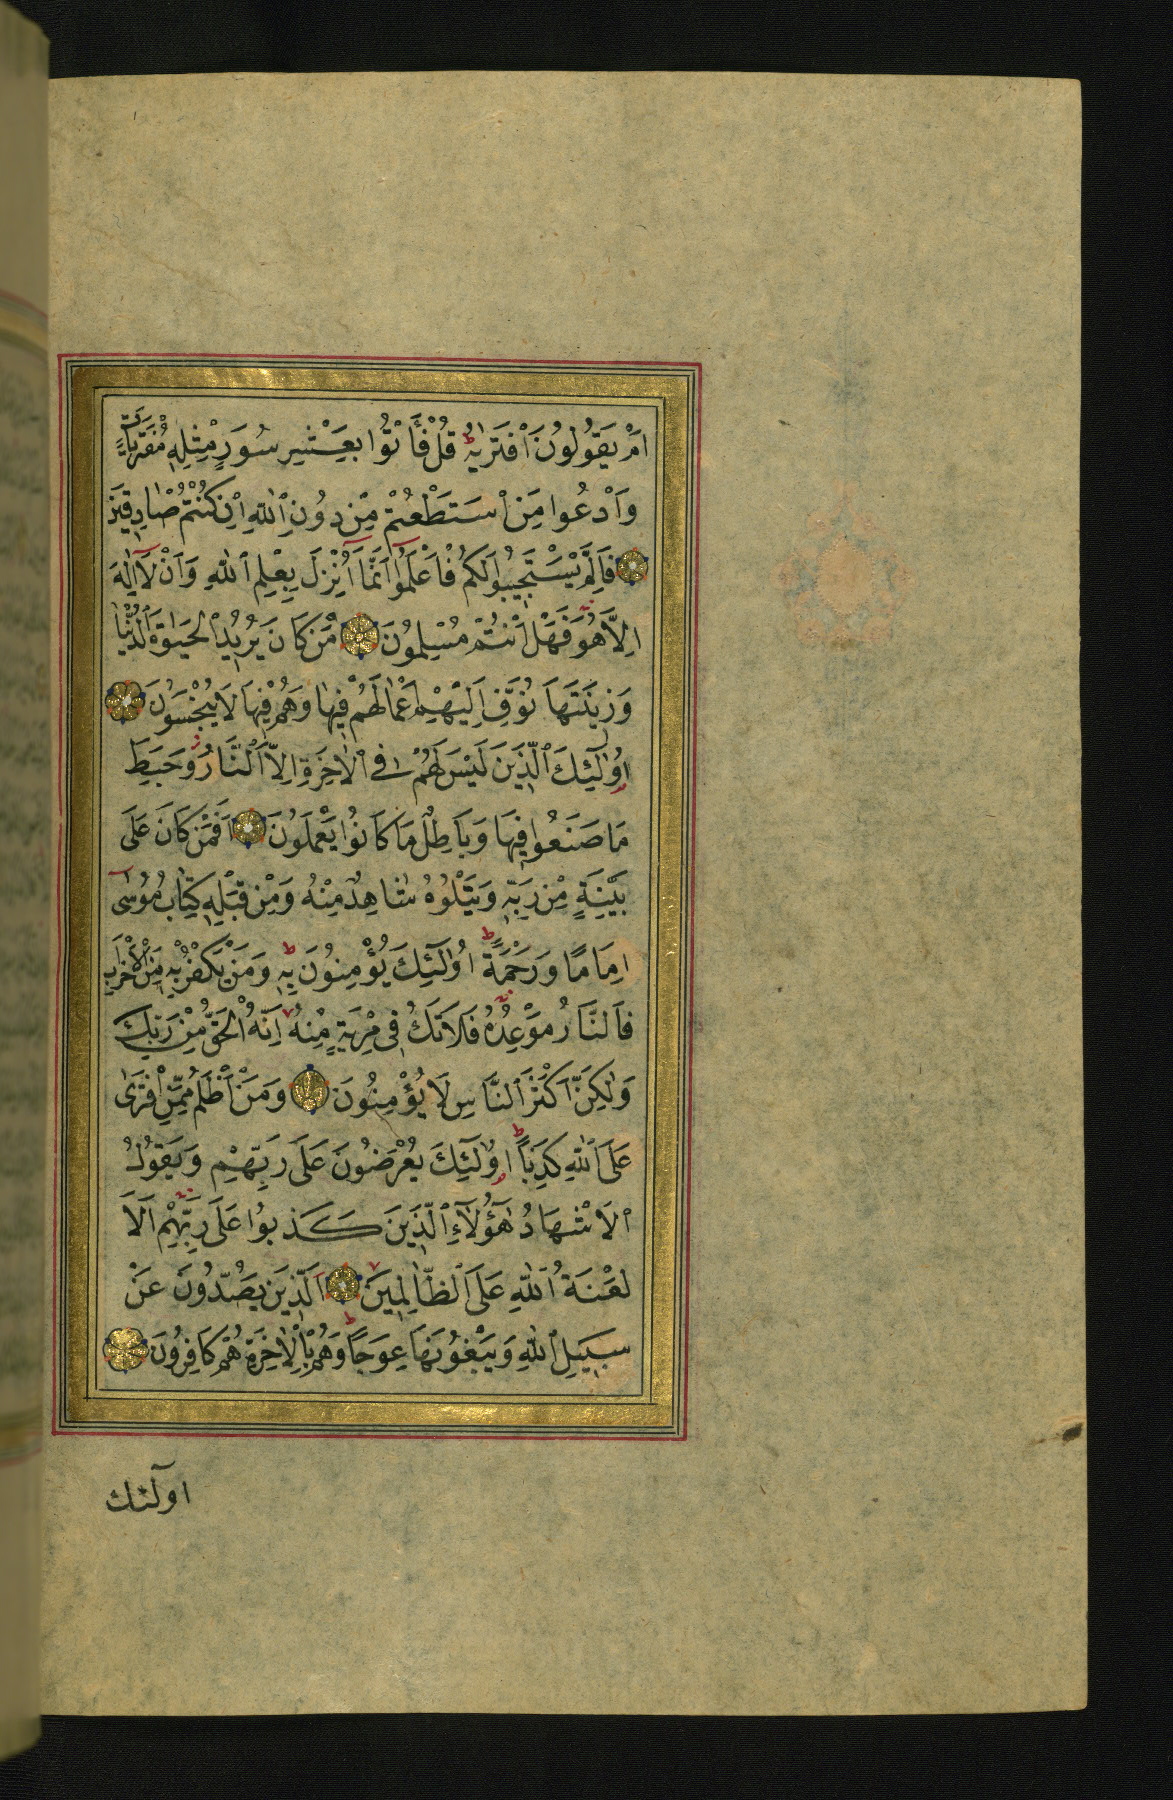 اَمْ يَقُولُونَ افْتَرٰيهُ ط قُلْ فَأْتُوا بِعَشْرِ سُوَرٍ مِثْلِهِ مُفْتَرَيَاتٍ
وَادْعُوا مَنِ اسْتَطَعْتُمْ مِنْ دُونِ اللهِ اِنْ كُنْتُمْ صَادِقِينَ
فَاِلَّمْ يَسْتَجِيبُوا لَكُمْ فَاعْلَمُوٓا اَنَّمَآ اُنْزِلَ بِعِلْمِ اللهِ وَاَنْ لَآ اِلٰهَ
اِلَّا هُوَ فَهَلْ اَنْتُمْ مُسْلِمُونَ مَنْ كَانَ يُرِيدُ الْحَيٰوةَ الدُّنْيَا
وَزِينَتَهَا نُوَفِّ اِلَيْهِمْ اَعْمَالَهُمْ فِيهَا وَهُمْ فِيهَا لَا يُبْخَسُونَ
اُولٰٓئِكَ الَّذِينَ لَيْسَ لَهُمْ فِي الْاٰخِرَةِ اِلَّا النَّارُ وَحَبِطَ
مَا صَنَعُوا فِيهَا وَبَاطِلٌ مَا كَانُوا يَعْمَلُونَ اَفَمَنْ كَانَ عَلَى
بَيِّنَةٍ مِنْ رَبِّهِ وَيَتْلُوهُ شَاهِدٌ مِنْهُ وَمِنْ قَبْلِهِ كِتَابُ مُوسٰٓى
اِمَامًا وَرَحْمَةً ط اُولٰٓئِكَ يُؤْمِنُونَ بِهِ ط وَمَنْ يَكْفُرْ بِهِ مِنَ الْاَحْزَابِ
فَالنَّارُ مَوْعِدُهُ فَلَا تَكُ فِي مِرْيَةٍ مِنْهُ اِنَّهُ الْحَقُّ مِنْ رَبِّكَ
وَلٰكِنَّ اَكْثَرَ النَّاسِ لَا يُؤْمِنُونَ وَمَنْ اَظْلَمُ مِمَّنِ افْتَرٰى
عَلَى اللهِ كَذِبًا ط اُولٰٓئِكَ يُعْرَضُونَ عَلَى رَبِّهِمْ وَيَقُولُ
الْاَشْهَادُ هٰٓؤُلَآءِ الَّذِينَ كَذَبُوا عَلَى رَبِّهِمْ اَلَا
لَعْنَةُ اللهِ عَلَى الظَّالِمِينَ اَلَّذِينَ يَصُدُّونَ عَنْ
سَبِيلِ اللهِ وَيَبْغُونَهَا عِوَجًا ط وَهُمْ بِالْاٰخِرَةِ هُمْ كَافِرُونَ
اولٓئك